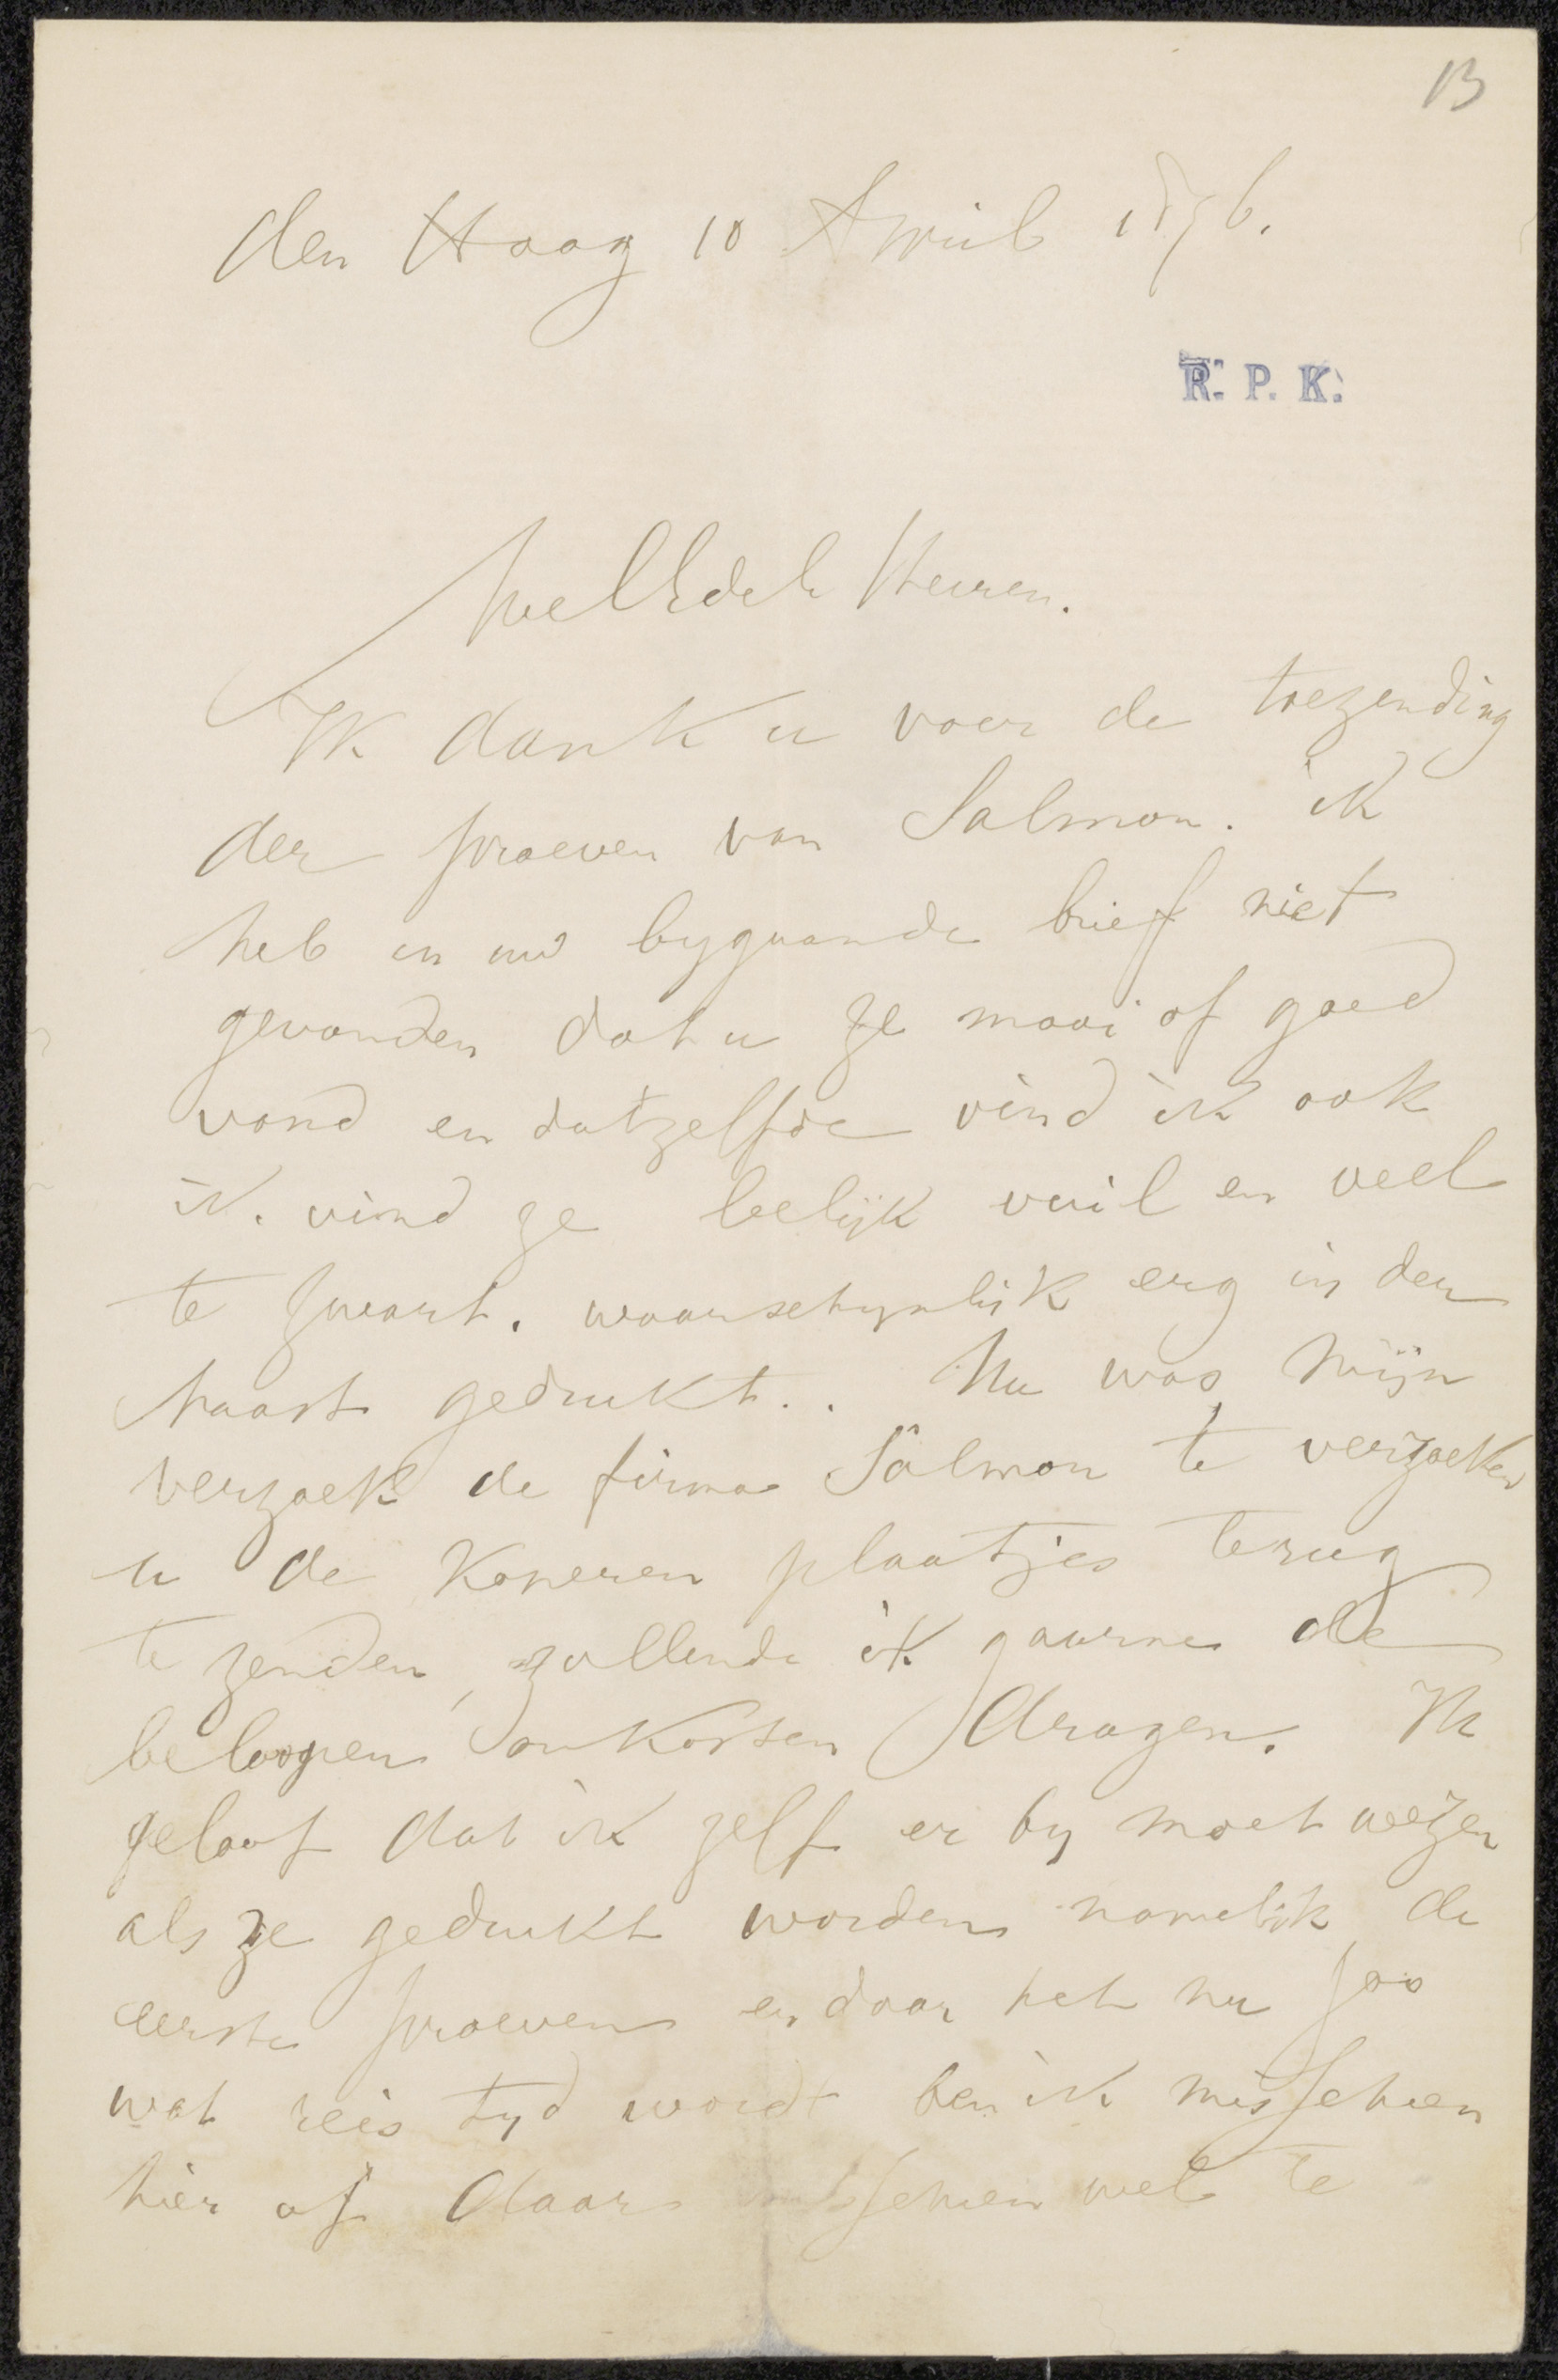 13
den Haag 10 April 1896.
R. P. K.
WelEdele Heeren.
Ik dank u voor de toezending
der proeven van Salmon. ik
heb in uw bygaande brief niet
gevonden dat u ze mooi of goed
vond en datzelfde vind ik ook
ik. vind ze leelijk vuil en veel
te zwart. waarschynlijk erg in der
haast gedrukt.. Nu was mijn
verzoek de firma Salmon te verzoeken
u de koperen plaatjes terug
te zenden, zullende ik gaarne de
beloopen onkosten dragen. Ik
geloof dat ik zelf er by moet wezen
als ze gedrukt worden namelijk de
eerste proeven en daar het nu zoo
wat reis tyd wordt ben ik misschien
hier of daar misschien wel te